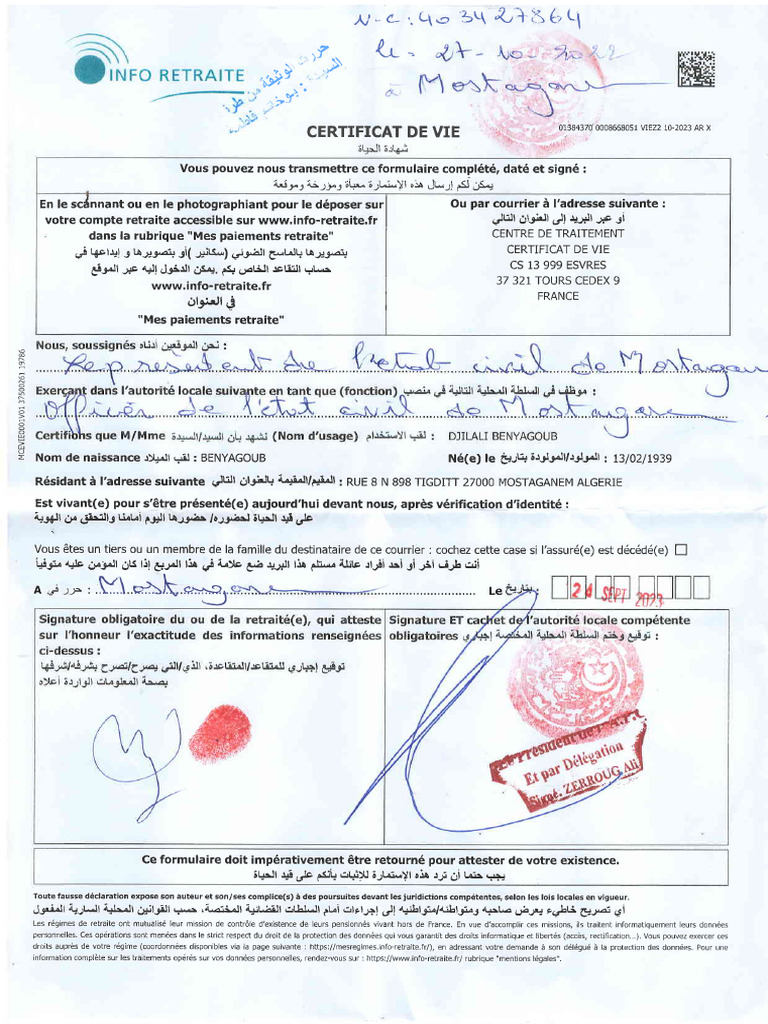 N-C: 403427864
le - 27-10-2022
à Mostagane
INFO RETRAITE
حررت لوثيقة من طرف
السيدة : بوخاتم فاطمة
01384370 0008668051 VIEZ2 10-2023 AR X
CERTIFICAT DE VIE
شهادة الحياة
Vous pouvez nous transmettre ce formulaire complété, daté et signé :
يمكن لكم إرسال هذه الإستمارة معبأة ومؤرخة وموقعة
En le scannant ou en le photographiant pour le déposer sur
votre compte retraite accessible sur www.info-retraite.fr
dans la rubrique "Mes paiements retraite"
بتصويرها بالماسح الضوئي (سكانير )أو بتصويرها و إيداعها في
حساب التقاعد الخاص بكم .يمكن الدخول إليه عبر الموقع
www.info-retraite.fr
في العنوان
"Mes paiements retraite"
Ou par courrier à l'adresse suivante :
أو عبر البريد إلى العنوان التالي
CENTRE DE TRAITEMENT
CERTIFICAT DE VIE
CS 13 999 ESVRES
37 321 TOURS CEDEX 9
FRANCE
MCEVIED001V01 37500261 19786
Nous, soussignés نحن الموقعين أدناه :
Le président de l'état civil de Mostagan
Exerçant dans l'autorité locale suivante en tant que (fonction) موظف في السلطة المحلية التالية في منصب :
Officier de l'état civil de Mostagane
Certifions que M/Mme نشهد بأن السيد/السيدة (Nom d'usage) لقب الاستخدام : DJILALI BENYAGOUB
Nom de naissance لقب الميلاد : BENYAGOUB Né(e) le المولود/المولودة بتاريخ : 13/02/1939
Résidant à l'adresse suivante المقيم/المقيمة بالعنوان التالي : RUE 8 N 898 TIGDITT 27000 MOSTAGANEM ALGERIE
Est vivant(e) pour s'être présenté(e) aujourd'hui devant nous, après vérification d'identité :
على قيد الحياة لحضوره/ حضورها اليوم أمامنا والتحقق من الهوية
Vous êtes un tiers ou un membre de la famille du destinataire de ce courrier : cochez cette case si l'assuré(e) est décédé(e)
أنت طرف أخر أو أحد أفراد عائلة مستلم هذا البريد ضع علامة في هذا المربع إذا كان المؤمن عليه متوفياً
A حرر في : Mostagane Le بتاريخ : 24 SEPT 2023
Signature obligatoire du ou de la retraité(e), qui atteste
sur l'honneur l'exactitude des informations renseignées
ci-dessus :
توقيع إجباري للمتقاعد/المتقاعدة، الذي/التي يصرح/تصرح بشرفه/شرفها
بصحة المعلومات الواردة أعلاه
Signature ET cachet de l'autorité locale compétente
obligatoires توقيع وختم السلطة المحلية المختصة إجباري :
Président de l'A.P.C
Et par Délégation
Signé. ZERROUG Ali
Ce formulaire doit impérativement être retourné pour attester de votre existence.
يجب حتما أن ترد هذه الإستمارة للإثبات بأنكم على قيد الحياة
Toute fausse déclaration expose son auteur et son/ses complice(s) à des poursuites devant les juridictions compétentes, selon les lois locales en vigueur.
أي تصريح خاطيء يعرض صاحبه ومتواطنه/متواطنيه إلى إجراءات أمام السلطات القضائية المختصة، حسب القوانين المحلية السارية المفعول
Les régimes de retraite ont mutualisé leur mission de contrôle d'existence de leurs pensionnés vivant hors de France. En vue d'accomplir ces missions, ils traitent informatiquement leurs données
personnelles. Ces opérations sont menées dans le strict respect du droit de la protection des données qui vous garantit des droits informatique et libertés (accès, rectification...). Vous pouvez exercer ces
droits auprès de votre régime (coordonnées disponibles via la page suivante : https://mesregimes.info-retraite.fr/), en adressant votre demande à son délégué à la protection des données. Pour une
information complète sur les traitements opérés sur vos données personnelles, rendez-vous sur : https://www.info-retraite.fr/ rubrique "mentions légales".